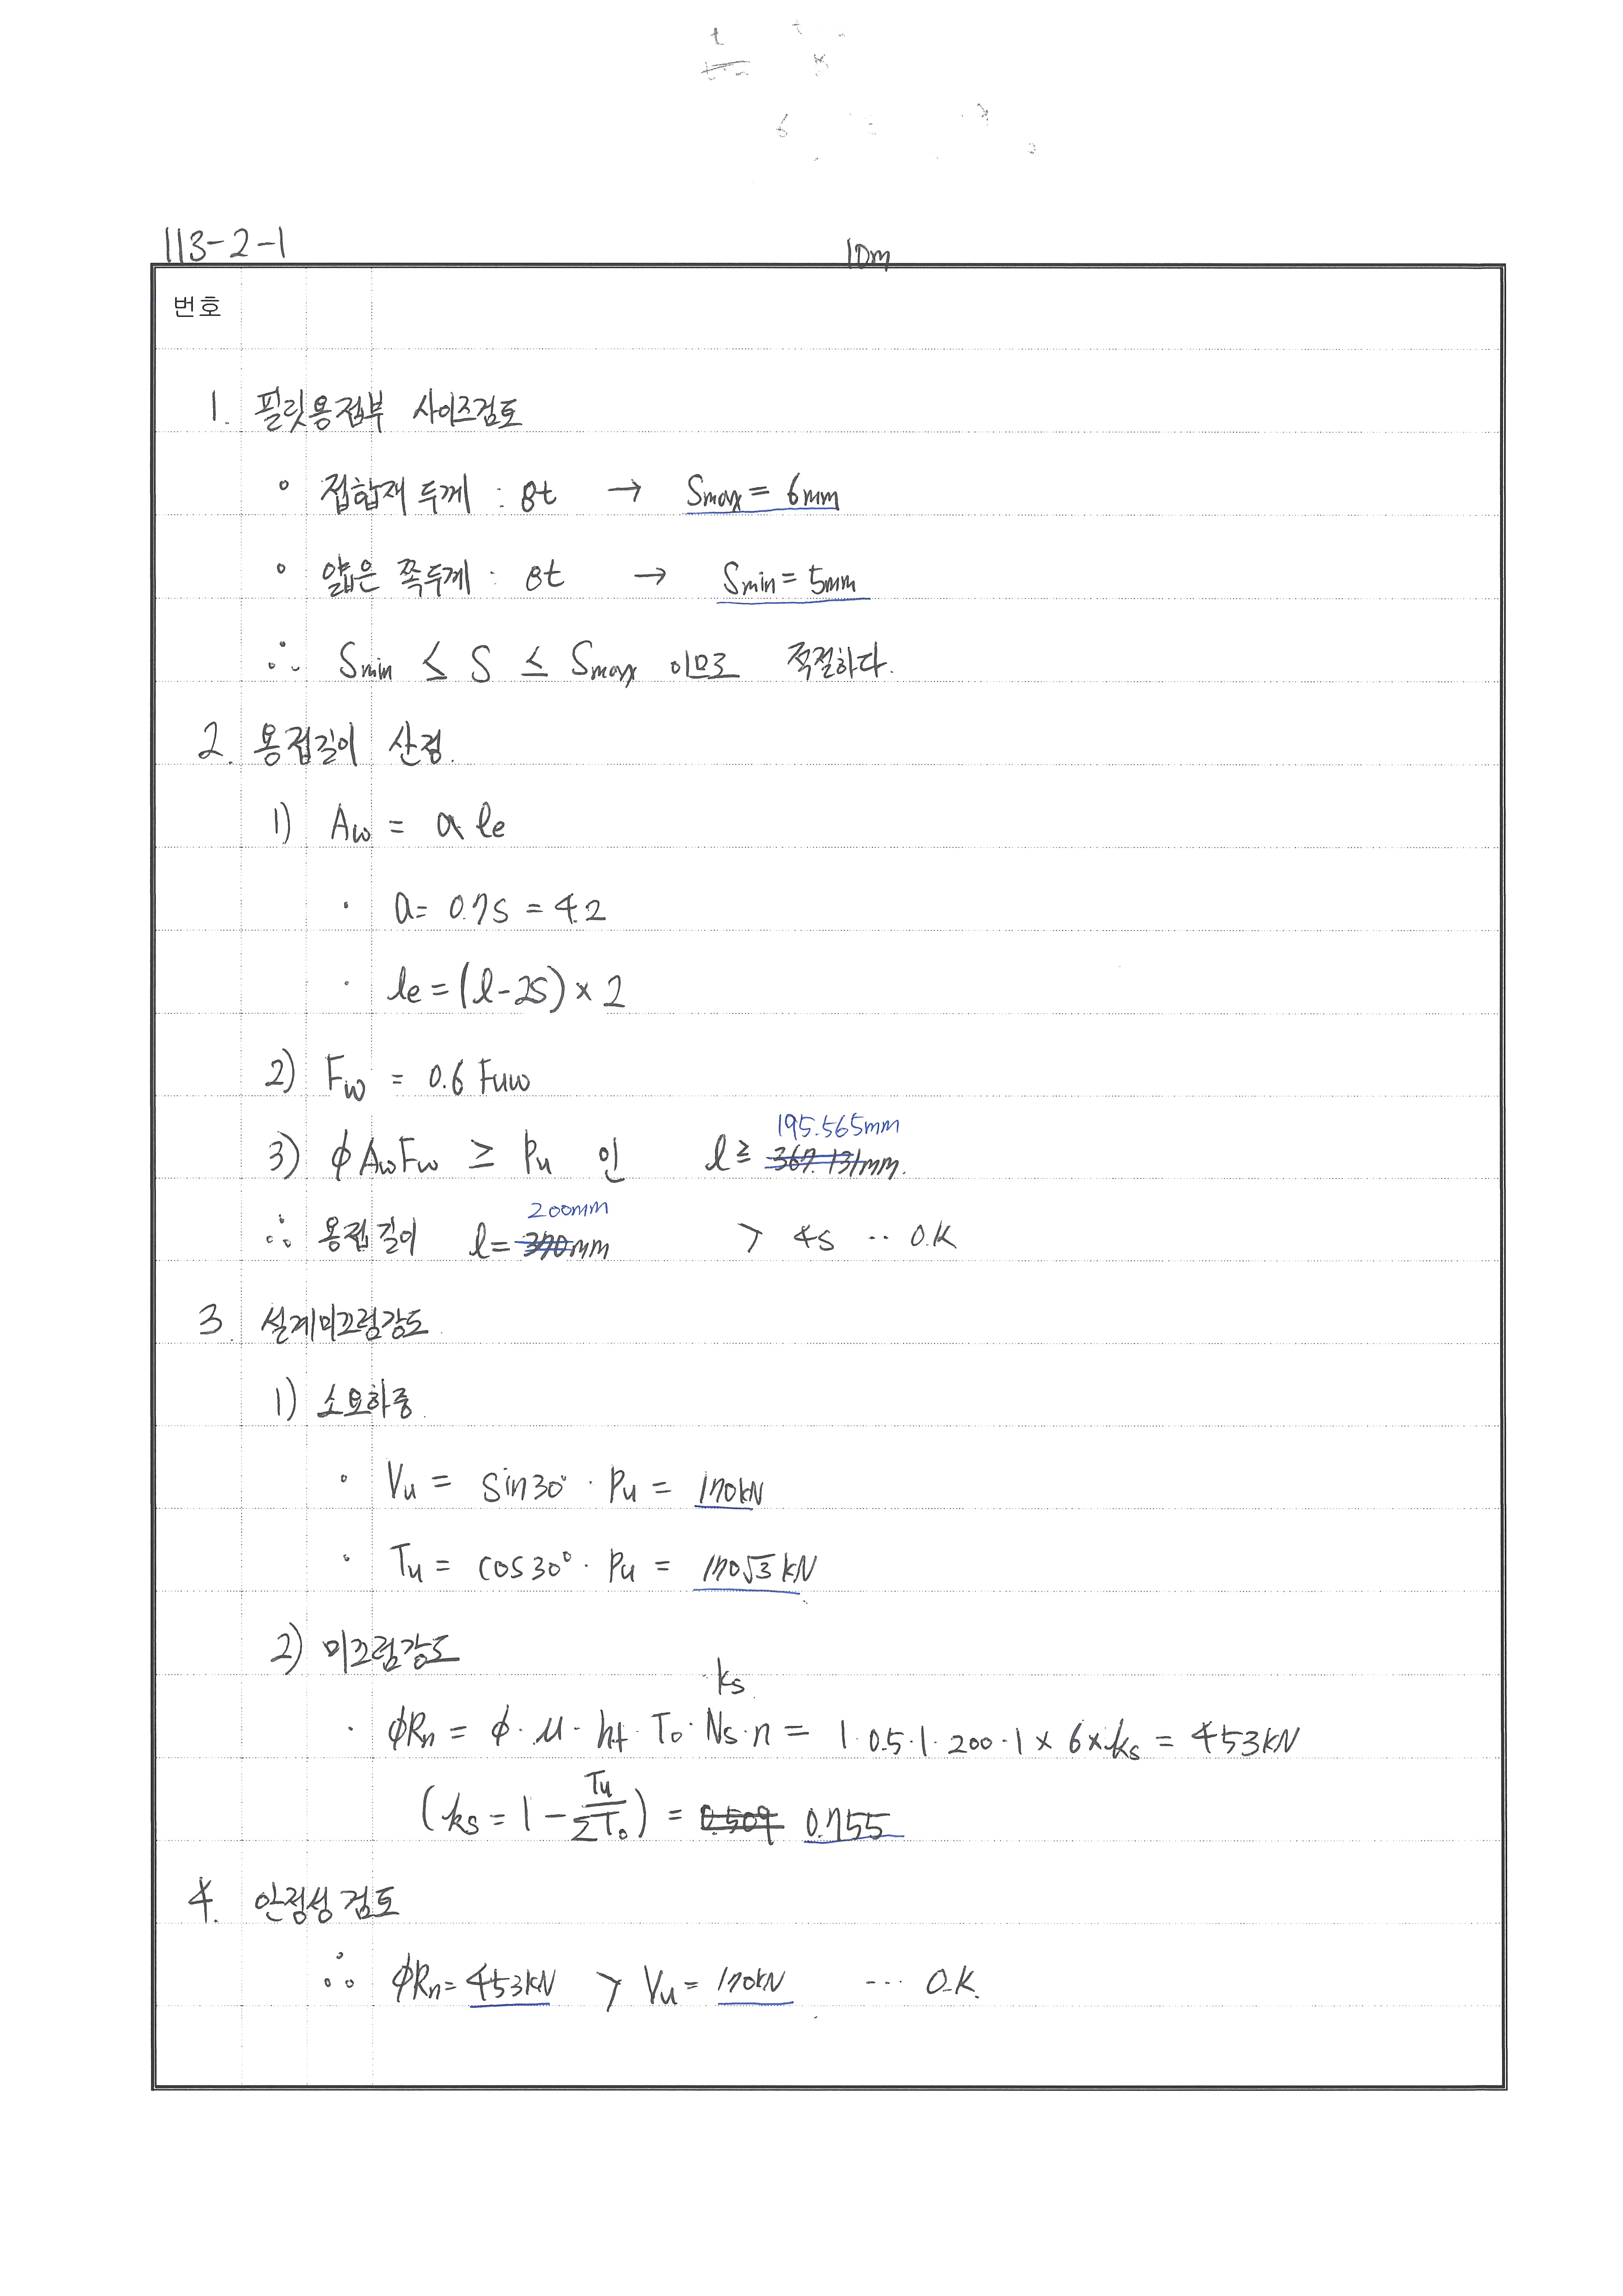 113-2-1
10m
번호
1. 필릿용접부 사이즈검토
◦ 접합재 두께 : 8t → Smax = 6mm
◦ 얇은 쪽두께 : 8t → Smin = 5mm
∴ Smin ≤ S ≤ Smax 이므로 적절하다.
2. 용접길이 산정.
1) Aw = a le
· a = 0.7S = 4.2
· le = (l - 2S) × 2
2) Fw = 0.6 Fuw
195.565mm
3) ϕAwFw ≥ Pu 인 l ≥ 367.131mm.
200mm
∴ 용접길이 l = 370mm > 4s ‥ O.K
3. 설계미끄럼강도
1) 소요하중.
· Vu = sin30° · Pu = 170kN
· Tu = cos30° · Pu = 170√3 kN
2) 미끄럼강도
·ks
· ϕRn = ϕ · μ · hf · To · Ns · n = 1 · 0.5 · 1 · 200 · 1 × 6 × ks = 453kN
(ks = 1 - Tu/ΣTo) = 0.509 0.755
4. 안정성 검토
∴ ϕRn = 453kN > Vu = 170kN … O.K.